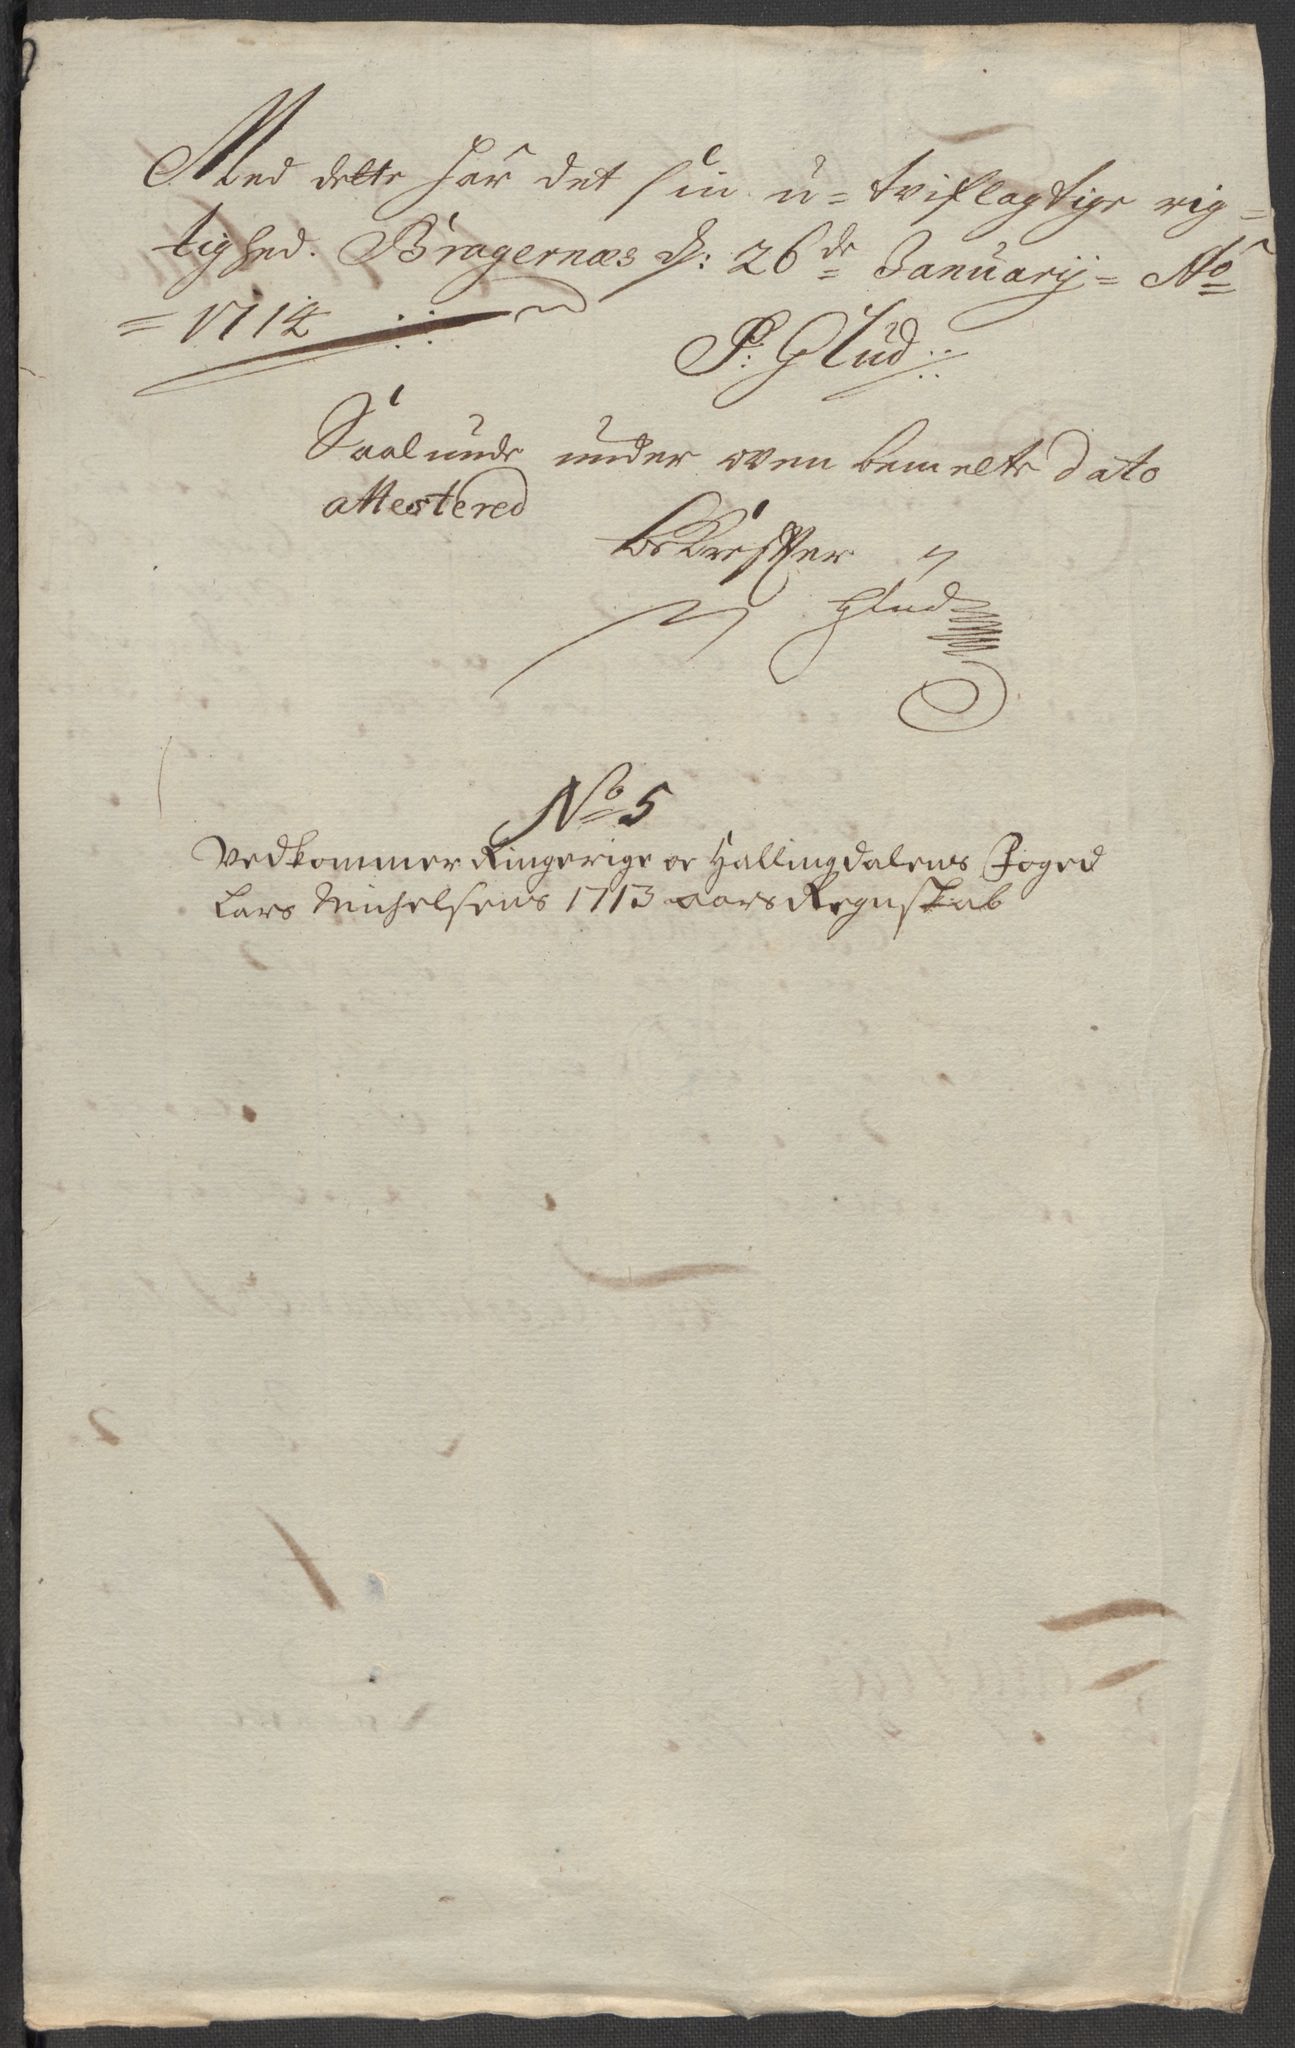 Med dette har det sin u=tviflagtige rig=
tighed. Bragernæs d: 26de Januarij= Ao
= 1714
P: Glud
Saalunde under oven bemelte dato
attestered
bekrefter
Glud
No 5
Vedkommer Ringerige oc Hallingdalens Foged
Lars Michelsens 1713 aars Regnskab